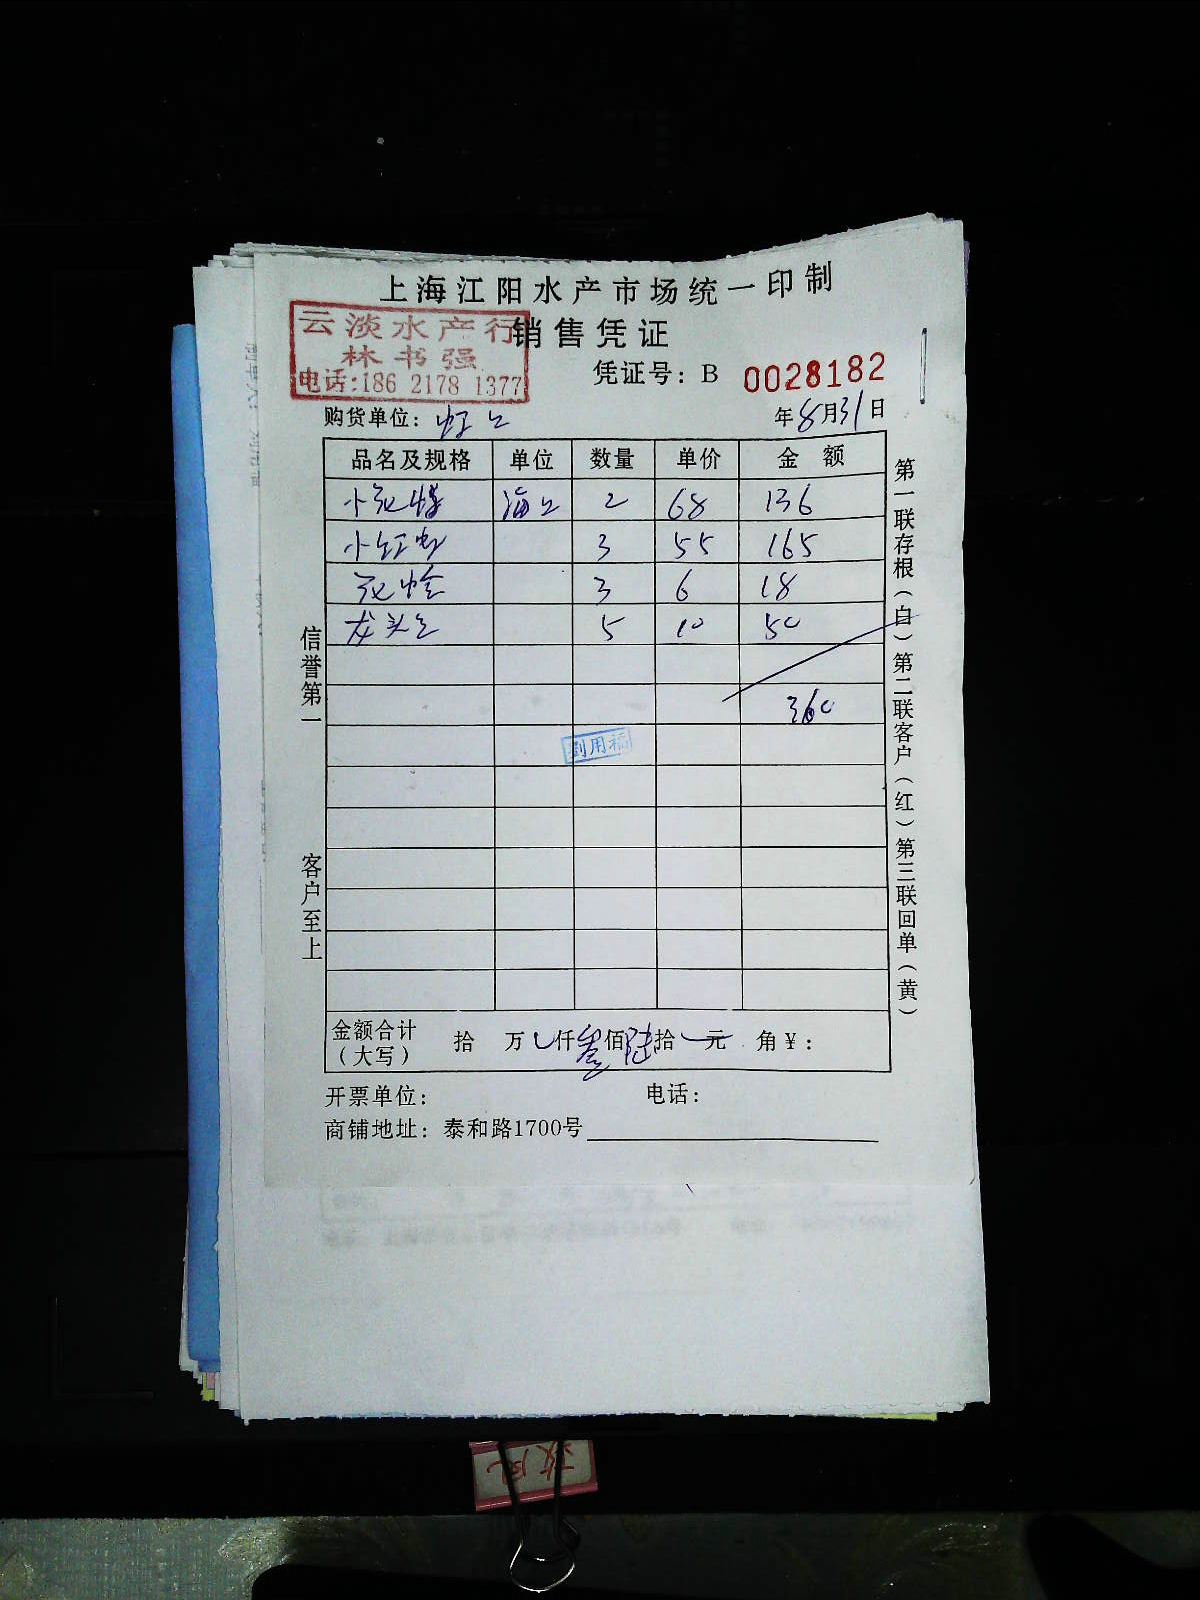 上海江阳水产市场统一印制
云淡水产行
销售凭证
林书强
凭证号：B 0028182
电话:186 2178 1377
购货单位：虹口
年8月31日
品名及规格 单位 数量 单价 金额
2 68 136
小红虾 3 55 165
花蛤 3 6 18
龙头 5 10 50
360
信誉第一
客户至上
第一联存根（白）第二联客户（红）第三联回单（黄）
金额合计（大写） 拾 万 仟叁佰陆拾 元 角￥：
开票单位： 电话：
商铺地址：泰和路1700号